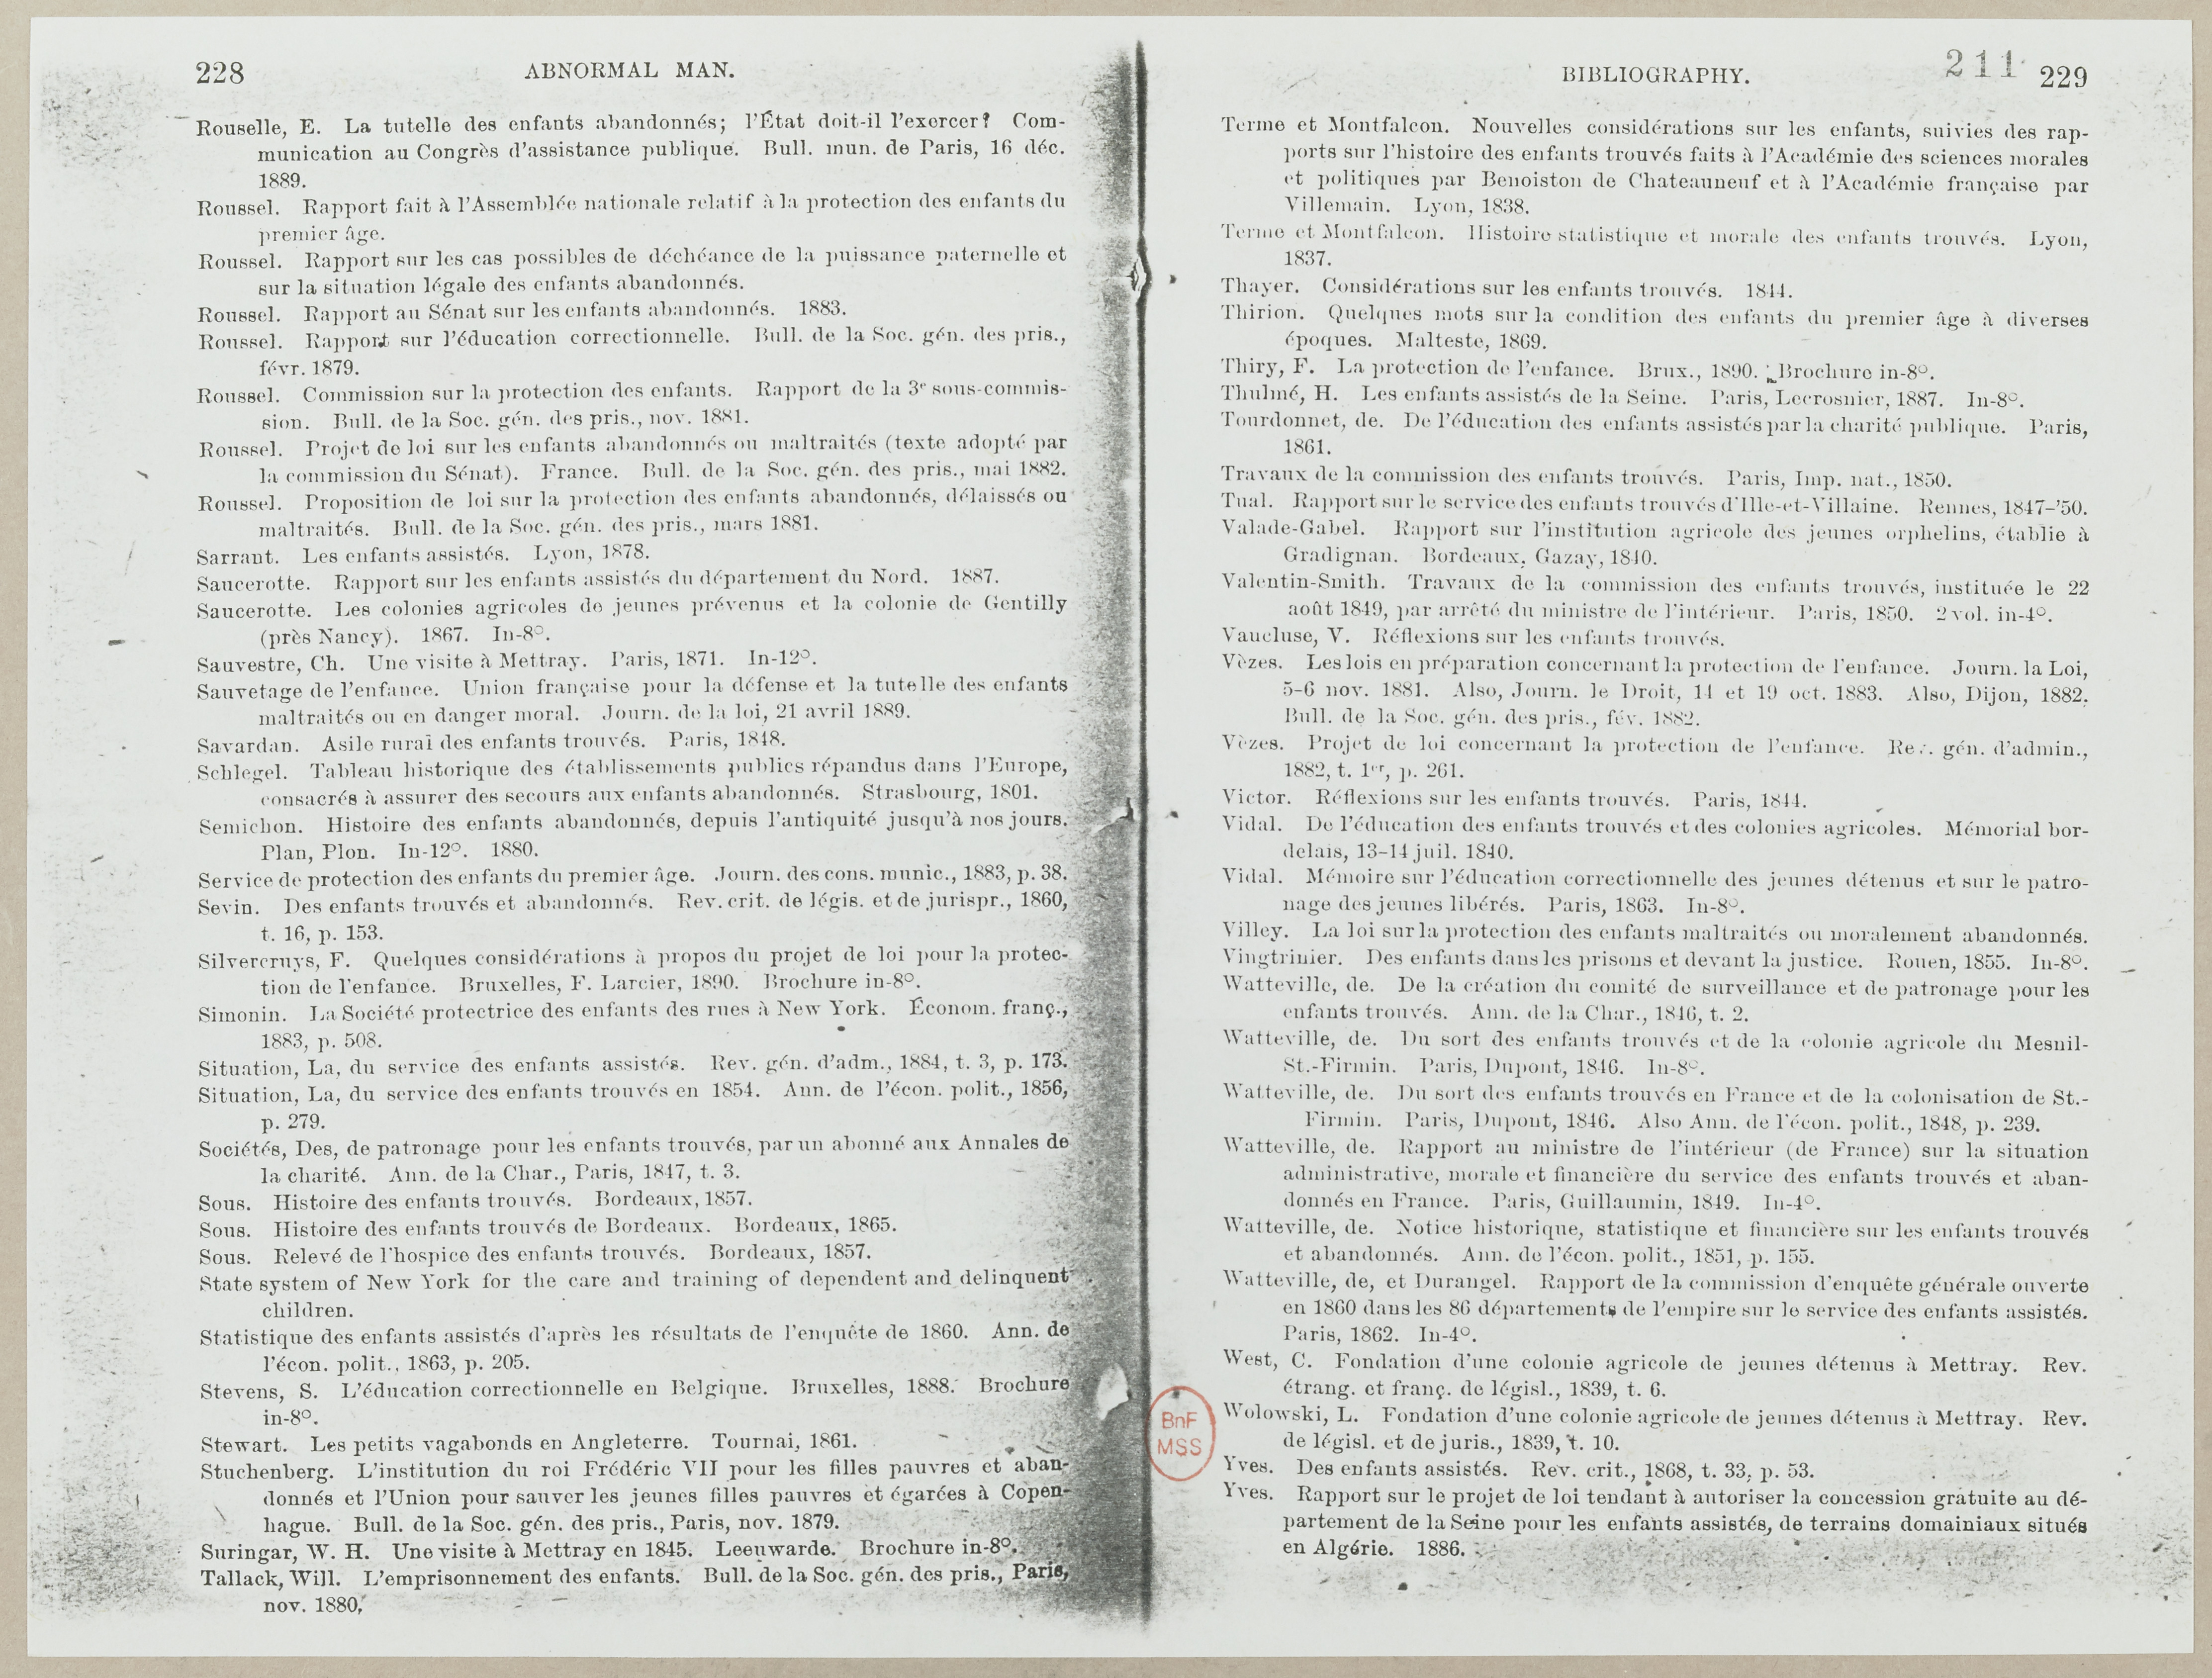 228
ABNORMAL MAN.
Rouselle, E. La tutelle des enfants abandonnés; l'État doit-il l'exercer? Com-
munication au Congrès d'assistance publique. Bull. mun. de Paris, 16 déc.
1889.
Roussel. Rapport fait à l'Assemblée nationale relatif à la protection des enfants du
premier âge.
Roussel. Rapport sur les cas possibles de déchéance de la puissance paternelle et
sur la situation légale des enfants abandonnés.
Roussel. Rapport au Sénat sur les enfants abandonnés. 1883.
Roussel. Rapport sur l'éducation correctionnelle. Bull. de la Soc. gén. des pris.,
févr. 1879.
Roussel. Commission sur la protection des enfants. Rapport de la 3e sous-commis-
sion. Bull. de la Soc. gén. des pris., nov. 1881.
Roussel. Projet de loi sur les enfants abandonnés ou maltraités (texte adopté par
la commission du Sénat). France. Bull. de la Soc. gén. des pris., mai 1882.
Roussel. Proposition de loi sur la protection des enfants abandonnés, délaissés ou
maltraités. Bull. de la Soc. gén. des pris., mars 1881.
Sarrant. Les enfants assistés. Lyon, 1878.
Saucerotte. Rapport sur les enfants assistés du département du Nord. 1887.
Saucerotte. Les colonies agricoles de jeunes prévenus et la colonie de Gentilly
(près Nancy). 1867. In-8°.
Sauvestre, Ch. Une visite à Mettray. Paris, 1871. In-12°.
Sauvetage de l'enfance. Union française pour la défense et la tutelle des enfants
maltraités ou en danger moral. Journ. de la loi, 21 avril 1889.
Savardan. Asile rural des enfants trouvés. Paris, 1848.
Schlegel. Tableau historique des établissements publics répandus dans l'Europe,
consacrés à assurer des secours aux enfants abandonnés. Strasbourg, 1801.
Semichon. Histoire des enfants abandonnés, depuis l'antiquité jusqu'à nos jours.
Plan, Plon. In-12°. 1880.
Service de protection des enfants du premier âge. Journ. des cons. munic., 1883, p. 38.
Sevin. Des enfants trouvés et abandonnés. Rev. crit. de légis. et de jurispr., 1860,
t. 16, p. 153.
Silvercruys, F. Quelques considérations à propos du projet de loi pour la protec-
tion de l'enfance. Bruxelles, F. Larcier, 1890. Brochure in-8°.
Simonin. La Société protectrice des enfants des rues à New York. Économ. franç.,
1883, p. 508.
Situation, La, du service des enfants assistés. Rev. gén. d'adm., 1884, t. 3, p. 173.
Situation, La, du service des enfants trouvés en 1854. Ann. de l'écon. polit., 1856,
p. 279.
Sociétés, Des, de patronage pour les enfants trouvés, par un abonné aux Annales de
la charité. Ann. de la Char., Paris, 1847, t. 3.
Sous. Histoire des enfants trouvés. Bordeaux, 1857.
Sous. Histoire des enfants trouvés de Bordeaux. Bordeaux, 1865.
Sous. Relevé de l'hospice des enfants trouvés. Bordeaux, 1857.
State system of New York for the care and training of dependent and delinquent
children.
Statistique des enfants assistés d'après les résultats de l'enquête de 1860. Ann. de
l'écon. polit., 1863, p. 205.
Stevens, S. L'éducation correctionnelle en Belgique. Bruxelles, 1888. Brochure
in-8°.
Stewart. Les petits vagabonds en Angleterre. Tournai, 1861.
Stuchenberg. L'institution du roi Frédéric VII pour les filles pauvres et aban-
donnés et l'Union pour sauver les jeunes filles pauvres et égarées à Copen-
hague. Bull. de la Soc. gén. des pris., Paris, nov. 1879.
Suringar, W. H. Une visite à Mettray en 1845. Leeuwarde. Brochure in-8°.
Tallack, Will. L'emprisonnement des enfants. Bull. de la Soc. gén. des pris., Paris,
nov. 1880,
BIBLIOGRAPHY.
211
229
Terme et Montfalcon. Nouvelles considérations sur les enfants, suivies des rap-
ports sur l'histoire des enfants trouvés faits à l'Académie des sciences morales
et politiques par Benoiston de Chateauneuf et à l'Académie française par
Villemain. Lyon, 1838.
Terme et Montfalcon. Histoire statistique et morale des enfants trouvés. Lyon,
1837.
Thayer. Considérations sur les enfants trouvés. 1844.
Thirion. Quelques mots sur la condition des enfants du premier âge à diverses
époques. Malteste, 1869.
Thiry, F. La protection de l'enfance. Brux., 1890. Brochure in-8°.
Thulmé, H. Les enfants assistés de la Seine. Paris, Lecrosnier, 1887. In-8°.
Tourdonnet, de. De l'éducation des enfants assistés par la charité publique. Paris,
1861.
Travaux de la commission des enfants trouvés. Paris, Imp. nat., 1850.
Tual. Rapport sur le service des enfants trouvés d'Ille-et-Villaine. Rennes, 1847–'50.
Valade-Gabel. Rapport sur l'institution agricole des jeunes orphelins, établie à
Gradignan. Bordeaux, Gazay, 1840.
Valentin-Smith. Travaux de la commission des enfants trouvés, instituée le 22
août 1849, par arrêté du ministre de l'intérieur. Paris, 1850. 2 vol. in-4°.
Vaucluse, V. Réflexions sur les enfants trouvés.
Vèzes. Les lois en préparation concernant la protection de l'enfance. Journ. la Loi,
5–6 nov. 1881. Also, Journ. le Droit, 14 et 19 oct. 1883. Also, Dijon, 1882.
Bull. de la Soc. gén. des pris., fév. 1882.
Vèzes. Projet de loi concernant la protection de l'enfance. Rev. gén. d'admin.,
1882, t. 1er, p. 261.
Victor. Réflexions sur les enfants trouvés. Paris, 1844.
Vidal. De l'éducation des enfants trouvés et des colonies agricoles. Mémorial bor-
delais, 13–14 juil. 1840.
Vidal. Mémoire sur l'éducation correctionnelle des jeunes détenus et sur le patro-
nage des jeunes libérés. Paris, 1863. In-8°.
Villey. La loi sur la protection des enfants maltraités ou moralement abandonnés.
Vingtrinier. Des enfants dans les prisons et devant la justice. Rouen, 1855. In-8°.
Watteville, de. De la création du comité de surveillance et de patronage pour les
enfants trouvés. Ann. de la Char., 1846, t. 2.
Watteville, de. Du sort des enfants trouvés et de la colonie agricole du Mesnil-
St.-Firmin. Paris, Dupont, 1846. In-8°.
Watteville, de. Du sort des enfants trouvés en France et de la colonisation de St.-
Firmin. Paris, Dupont, 1846. Also Ann. de l'écon. polit., 1848, p. 239.
Watteville, de. Rapport au ministre de l'intérieur (de France) sur la situation
administrative, morale et financière du service des enfants trouvés et aban-
donnés en France. Paris, Guillaumin, 1849. In-4°.
Watteville, de. Notice historique, statistique et financière sur les enfants trouvés
et abandonnés. Ann. de l'écon. polit., 1851, p. 155.
Watteville, de, et Durangel. Rapport de la commission d'enquête générale ouverte
en 1860 dans les 86 départements de l'empire sur le service des enfants assistés.
Paris, 1862. In-4°.
West, C. Fondation d'une colonie agricole de jeunes détenus à Mettray. Rev.
étrang. et franç. de législ., 1839, t. 6.
Wolowski, L. Fondation d'une colonie agricole de jeunes détenus à Mettray. Rev.
de législ. et de juris., 1839, t. 10.
Yves. Des enfants assistés. Rev. crit., 1868, t. 33, p. 53.
Yves. Rapport sur le projet de loi tendant à autoriser la concession gratuite au dé-
partement de la Seine pour les enfants assistés, de terrains domainiaux situés
en Algérie. 1886.
BnF
MSS